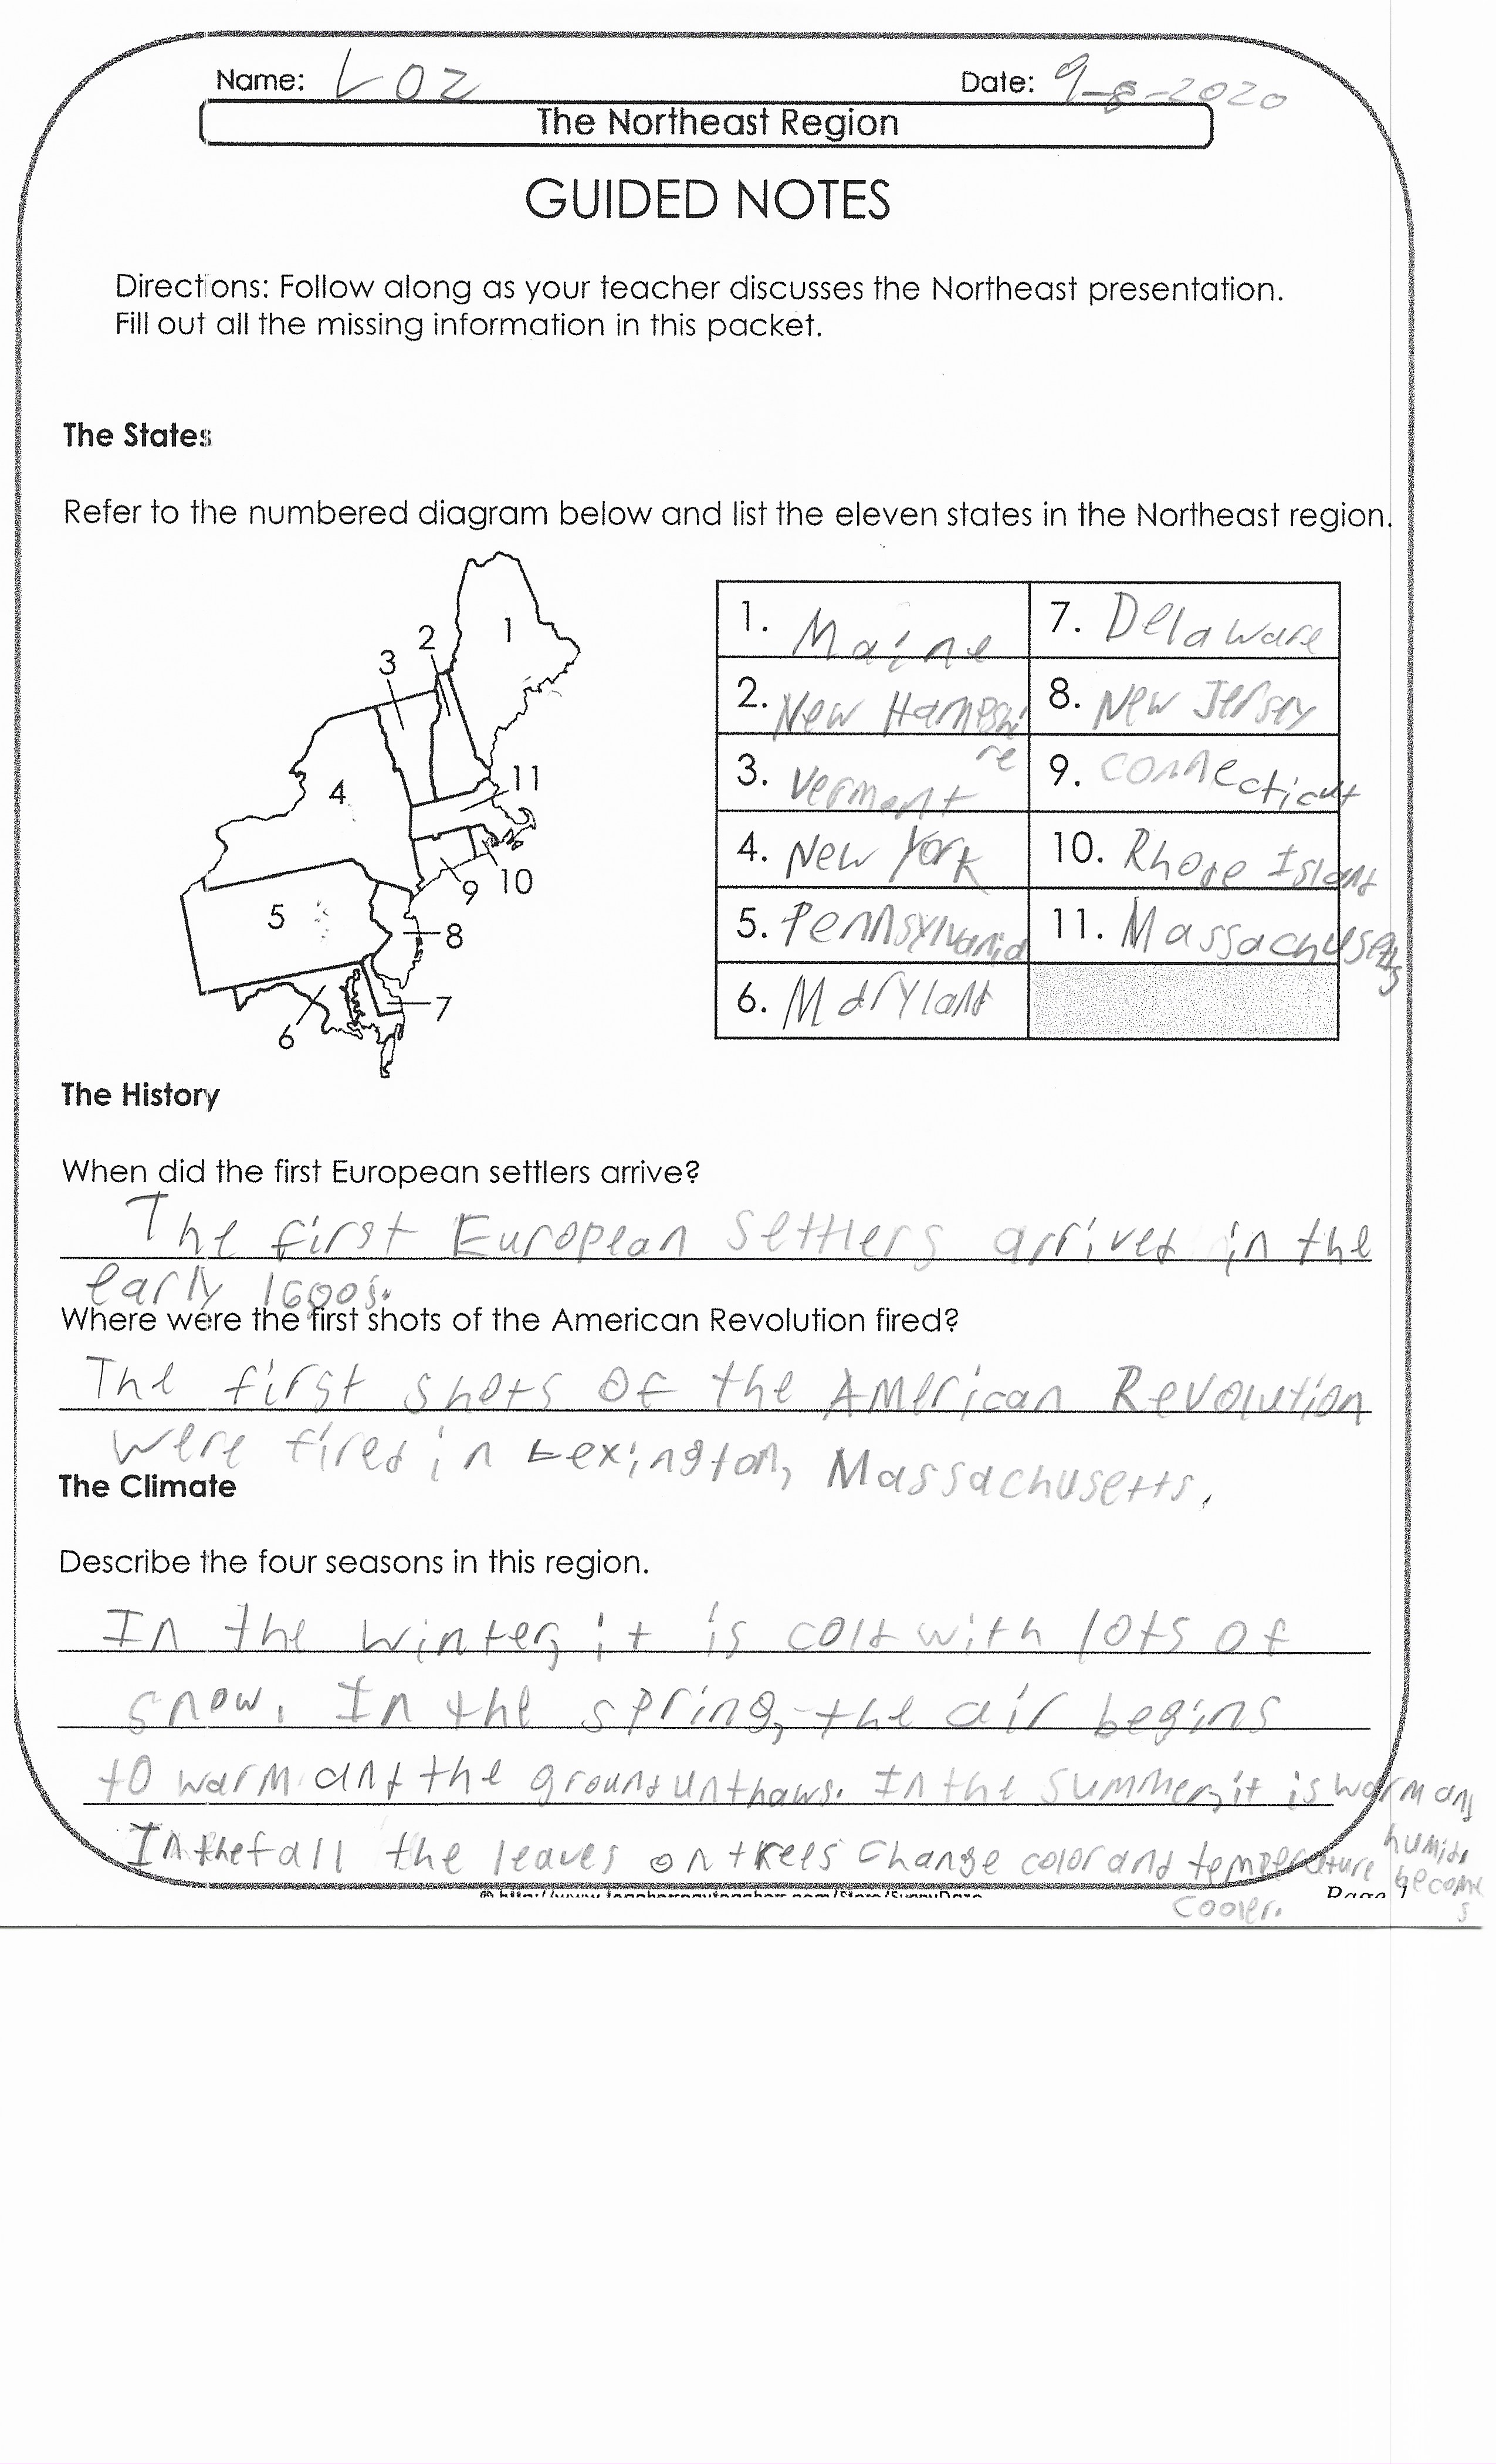 Name: Loz Date: 9-8-2020
The Northeast Region
GUIDED NOTES
Directions: Follow along as your teacher discusses the Northeast presentation.
Fill out all the missing information in this packet.
The States
Refer to the numbered diagram below and list the eleven states in the Northeast region.
1
2
3
4
11
9 10
5
8
7
6
1. Maine 7. Delaware
2. New Hampshire 8. New Jersey
3. Vermont 9. Connecticut
4. New York 10. Rhode Island
5. Pennsylvania 11. Massachusetts
6. Maryland
The History
When did the first European settlers arrive?
The first European settlers arrived in the
early 1600s.
Where were the first shots of the American Revolution fired?
The first shots of the American Revolution
were fired in Lexington, Massachusetts.
The Climate
Describe the four seasons in this region.
In the winter, it is cold with lots of
snow. In the spring, the air begins
to warm and the ground unthaws. In the summer, it is warm and
humid.
In the fall the leaves on trees change color and temperature becomes
cooler.
© http://www.teacherspayteachers.com/Store/SunnyDaze Page 1